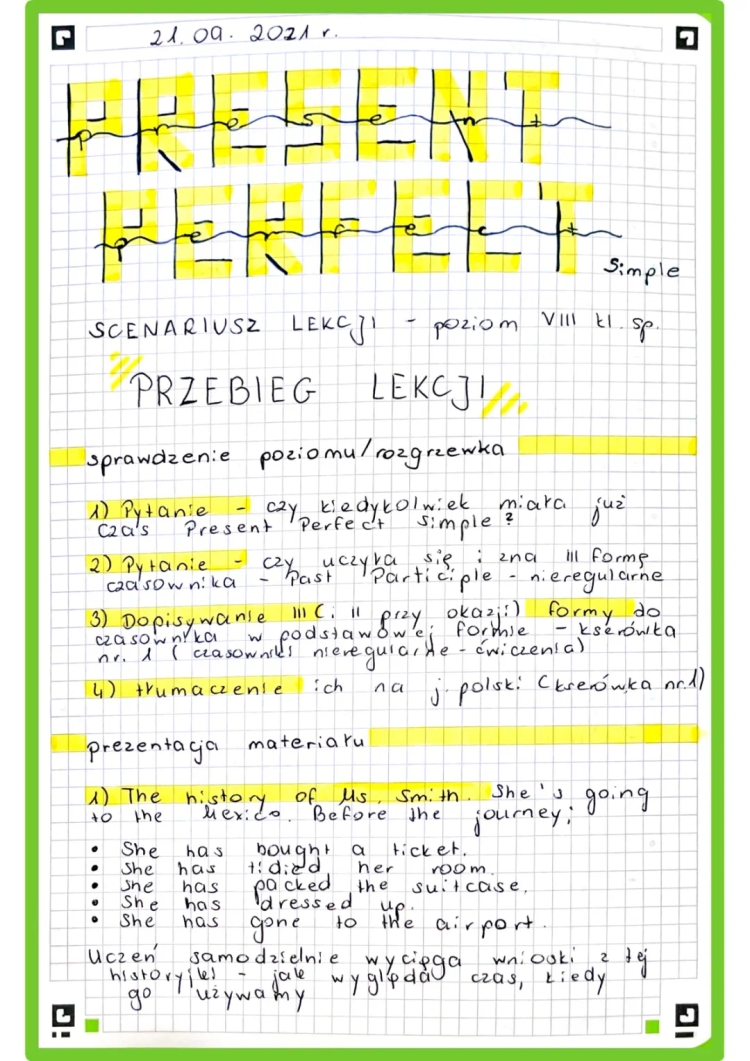 21.09.2021 r.
PRESENT
present
PERFECT
perfect
Simple
SCENARIUSZ LEKCJI - poziom VIII kl. sp.
PRZEBIEG LEKCJI
sprawdzenie poziomu/rozgrzewka
1) Pytanie - czy kiedykolwiek miała już
czas Present Perfect Simple?
2) Pytanie - czy uczyła się i zna III formę
czasownika - Past Participle - nieregularne
3) Dopisywanie III (i II przy okazji) formy do
czasownika w podstawowej formie - kserówka
nr. 1 (czasowniki nieregularne - ćwiczenia)
4) tłumaczenie ich na j. polski (kserówka nr.1)
prezentacja materiału
1) The history of Ms. Smith. She's going
to the Mexico. Before the journey;
• She has bought a ticket.
• She has tidied her room.
• She has packed the suitcase.
• She has dressed up.
• She has gone to the airport.
Uczeń samodzielnie wyciąga wnioski z tej
historyjki - jak wygląda czas, kiedy
go używamy